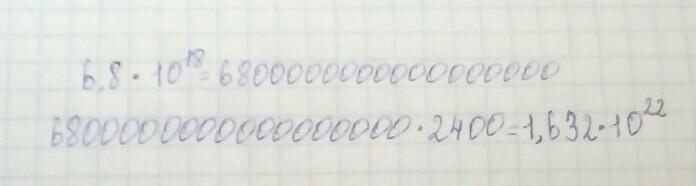 6,8·10¹⁸=6800000000000000000
6800000000000000000·2400=1,632·10²²